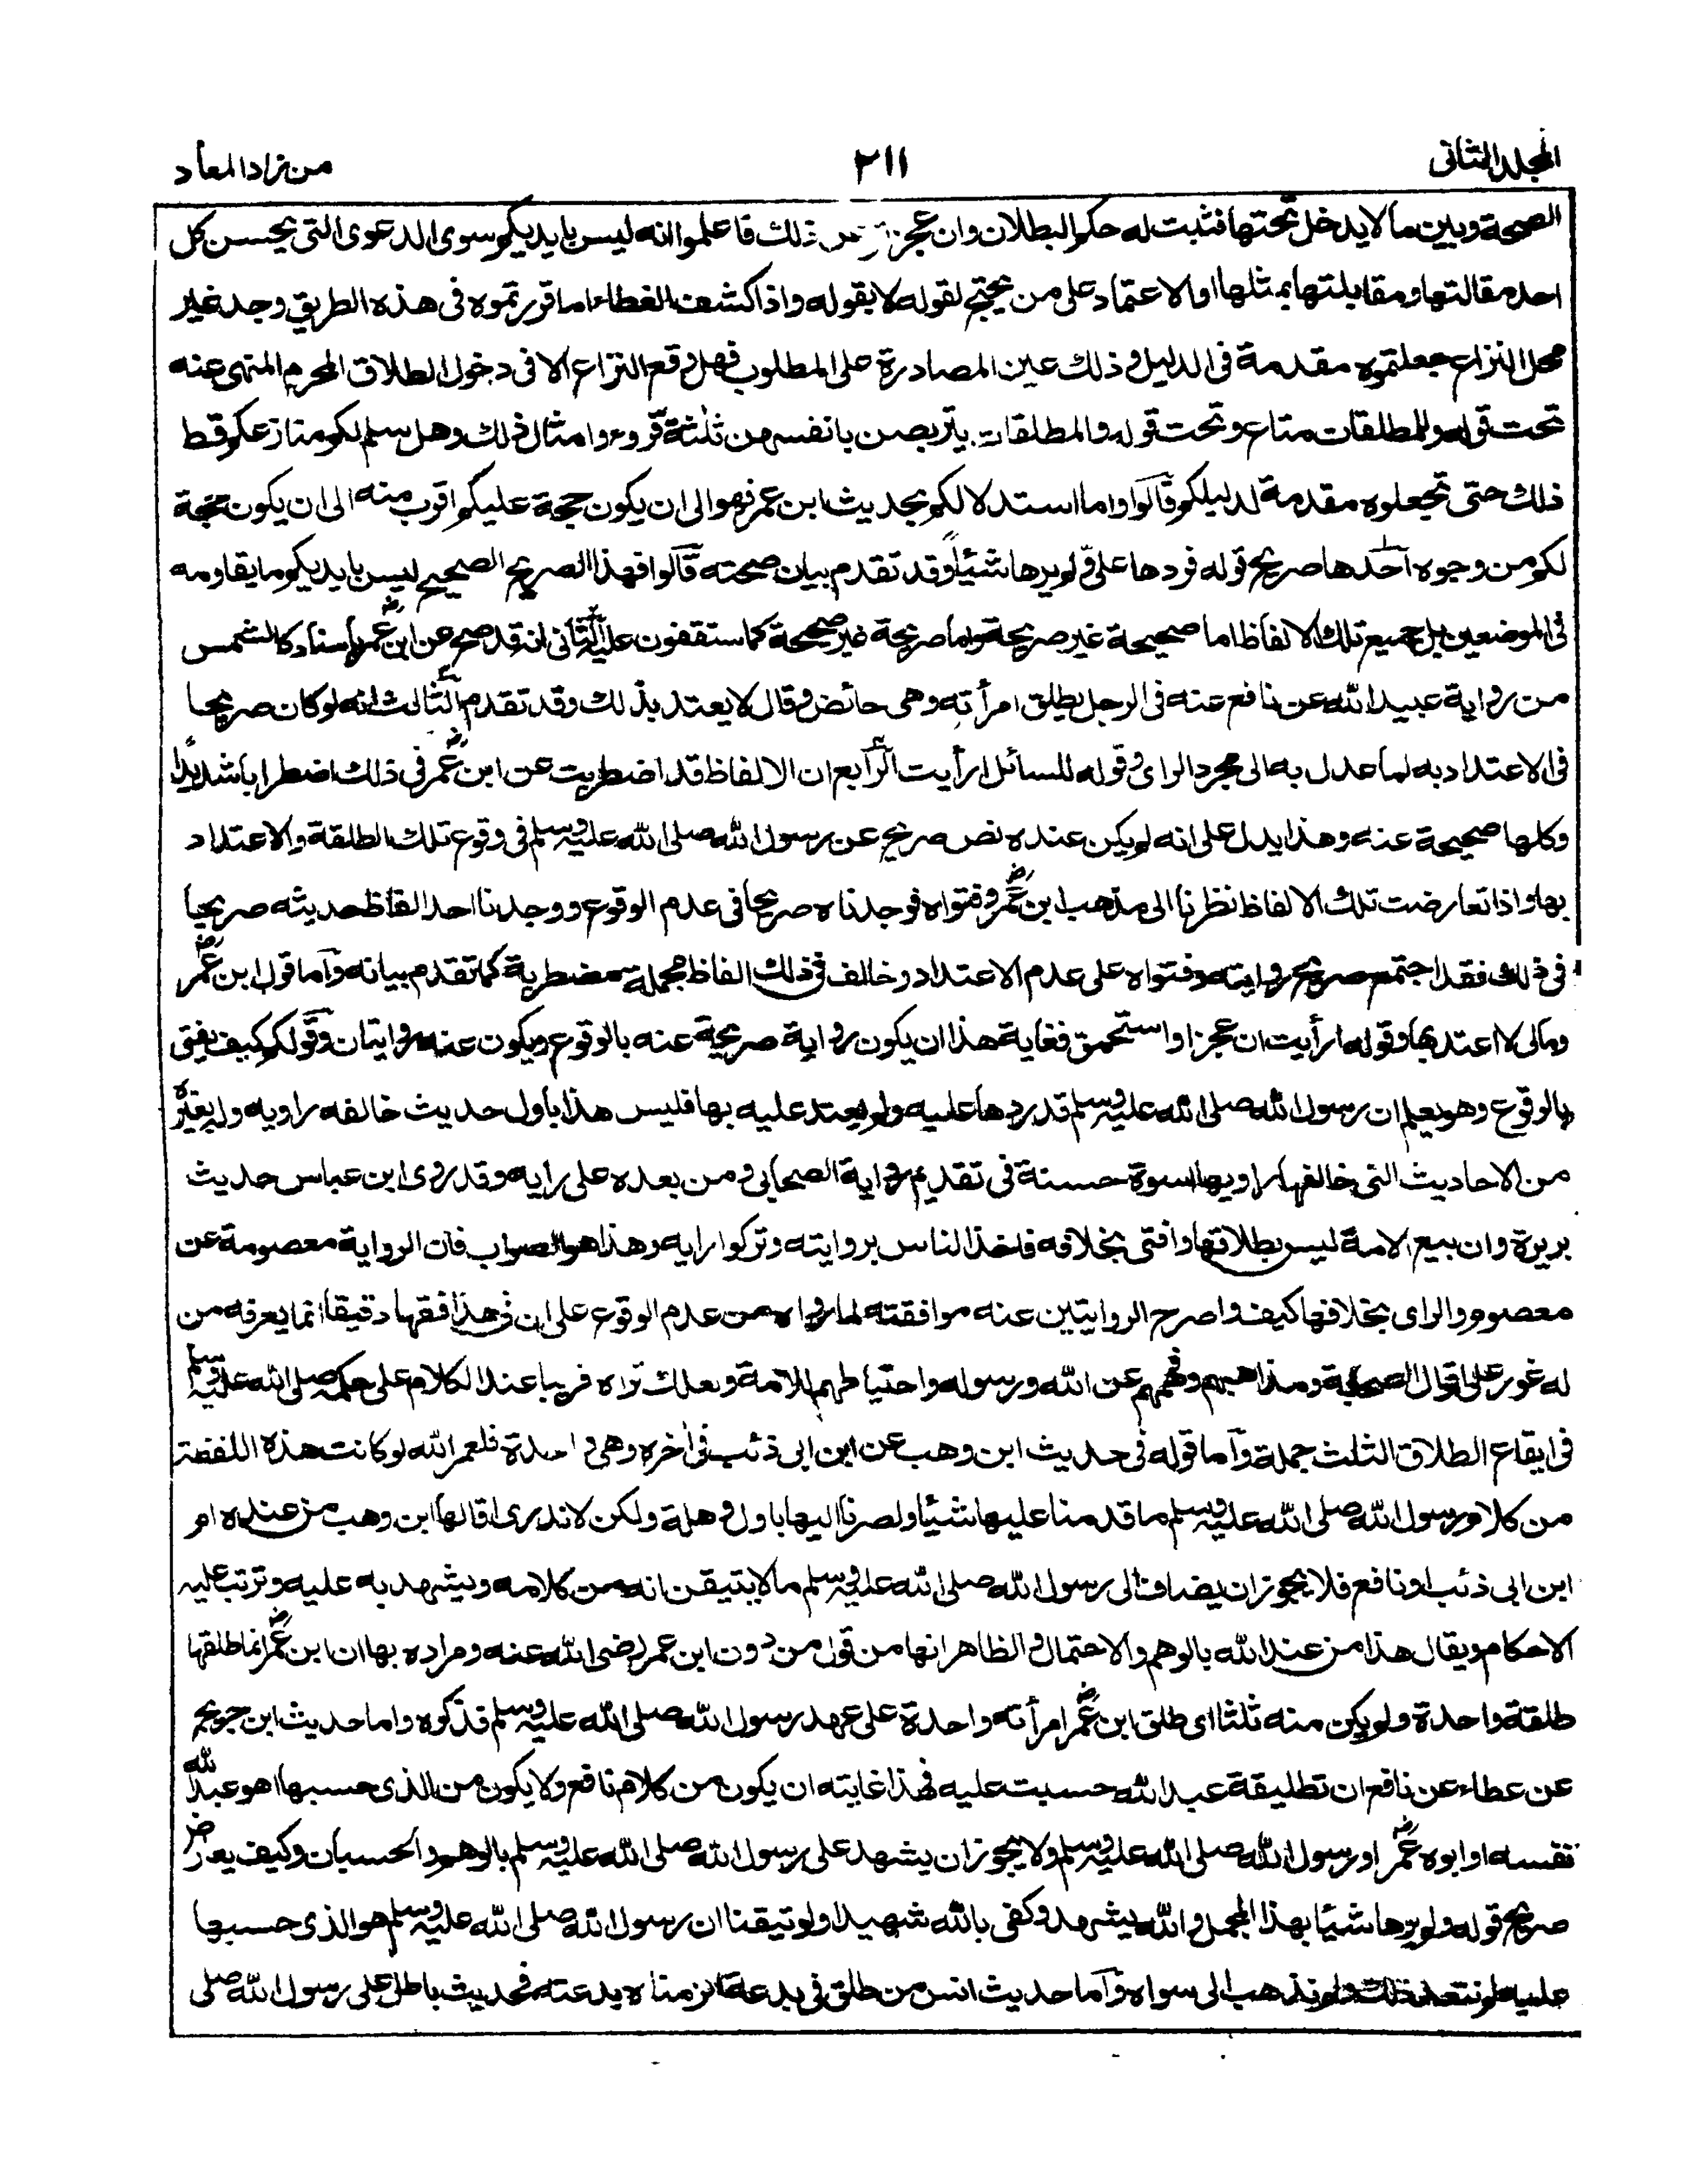 المجلد الثانى
٢١١
من زاد المعاد
الصحة وبين ما لا يدخل تحتها فثبت له حكم البطلان وان عجزتم عن ذلك فاعلموا انه ليس بايديكم سوى الدعوى التى يحسن كل
احد مقالتها ومقابلتها بمثلها او الاعتماد على من يحتج لقوله لا بقوله واذا كشف الغطاء اما قررتموه فى هذه الطريق وجد غير
محل النزاع جعلتموه مقدمة فى الدليل وذلك عين المصادرة على المطلوب فهل وقع النزاع الا فى دخول الطلاق المحرم المنهى عنه
تحت قوله وللمطلقات متاع وتحت قوله والمطلقات يتربصن بانفسهن ثلٰثة قروء وامثال ذلك وهل سلم لكم منازعكم قط
ذلك حتى تجعلوه مقدمة لدليلكم قالوا واما استدلالكم بحديث ابن عمر فهو الى ان يكون حجة عليكم اقرب منه الى ان يكون حجة
لكم من وجوه احدها صريح قوله فردها علىّ ولم يرها شيئا وقد تقدم بيان صحته قالوا فهذا الصريح الصحيح ليس بايديكم ما يقاومه
فى الموضعين بل جميع تلك الالفاظ اما صحيحة غير صريحة واما صريحة غير صحيحة كما ستقفون عليه الثانى انه قد صح عن ابن عمرؓ باسناد كالشمس
من رواية عبيد الله عن نافع عنه فى الرجل يطلق امرأته وهى حائض وقال لا يعتد بذلك وقد تقدم الثالث انه لو كان صريحا
فى الاعتداد به لما عدل به الى مجرد الراى وقوله للسائل ارأيت الرابع ان الالفاظ قد اضطربت عن ابن عمرؓ فى ذلك اضطرابا شديدًا
وكلها صحيحة عنه وهذا يدل على انه لم يكن عنده نص صريح عن رسول الله صلى الله عليه وسلم فى وقوع تلك الطلقة والاعتداد
بها واذا تعارضت تلك الالفاظ نظرنا الى مذهب ابن عمرؓ وفتواه فوجدناه صريحا فى عدم الوقوع ووجدنا احد الفاظ حديثه صريحيا
فى ذلك فقد اجتمع صريح روايته وفتواه على عدم الاعتداد وخالف فى ذلك الفاظ مجملة مضطربة كما تقدم بيانه وآما قول ابن عمرؓ
ومالى لا اعتد بها وقوله ارأيت ان عجز او استحمق فغاية هذا ان يكون رواية صريحة عنه بالوقوع ويكون عنه روايتان وقولكم كيف يفتى
بالوقوع وهو يعلم ان رسول الله صلى الله عليه وسلم قد ردها عليه ولم يعتد عليه بها فليس هذا باول حديث خالفه راويه وله بغيره
من الاحاديث التى خالفها راويها اسوة حسنة فى تقديم رواية الصحابى ومن بعده على رايه وقد روى ابن عباس حديث
بريرة وان بيع الامة ليس بطلاقها وافتى بخلافه فاخذ الناس بروايته وتركوا رايه وهذا هو الصواب فان الرواية معصومة عن
معصوم والراى بخلافها كيف واصرح الروايتين عنه موافقته لما رواه من عدم الوقوع على ان فى هذا فقها دقيقا انما يعرفه من
له غور على اقوال الصحابة ومذاهبهم وفهمهم عن الله ورسوله واحتياطهم للامة ولعلك تراه قريبا عند الكلام على حكمه صلى الله عليه وسلم
فى ايقاع الطلاق الثلث جملة وآما قوله فى حديث ابن وهب عن ابن ابى ذئب فى اٰخره وهى واحدة فلعمر الله لو كانت هذه اللفظة
من كلام رسول الله صلى الله عليه وسلم ما قدمنا عليها شيئا ولصرنا اليها باول وهلة ولكن لا ندرى اقالها ابن وهب من عنده ام
ابن ابى ذئب او نافع فلا يجوز ان يضاف الى رسول الله صلى الله عليه وسلم ما لا يتيقن انه من كلامه ويشهد به عليه وترتب عليه
الاحكام ويقال هذا من عند الله بالوهم والاحتمال والظاهر انها من قول من دون ابن عمر رضى الله عنه ومراده بها ان ابن عمرؓ انما طلقها
طلقة واحدة ولم يكن منه ثلثا اى طلق ابن عمرؓ امرأته واحدة على عهد رسول الله صلى الله عليه وسلم فذكوه واما حديث ابن جريج
عن عطاء عن نافع ان تطليقة عبد الله حسبت عليه فهذا غايته ان يكون من كلام نافع ولا يكون من الذى حسبها اهو عبد الله
نفسه او ابوه عمرؓ او رسول الله صلى الله عليه وسلم ولا يجوز ان يشهد على رسول الله صلى الله عليه وسلم بالوهم والحسبان وكيف يعارض
صريح قوله ولم يرها شيئا بهذا المجمل والله يشهد وكفى بالله شهيدا ولو تيقنا ان رسول الله صلى الله عليه وسلم هو الذى حسبها
عليه لم نتعد ذلك ولم نذهب الى سواه وآما حديث انس من طلق فى بدعة الزمناه بدعته فحديث باطل على رسول الله صلى